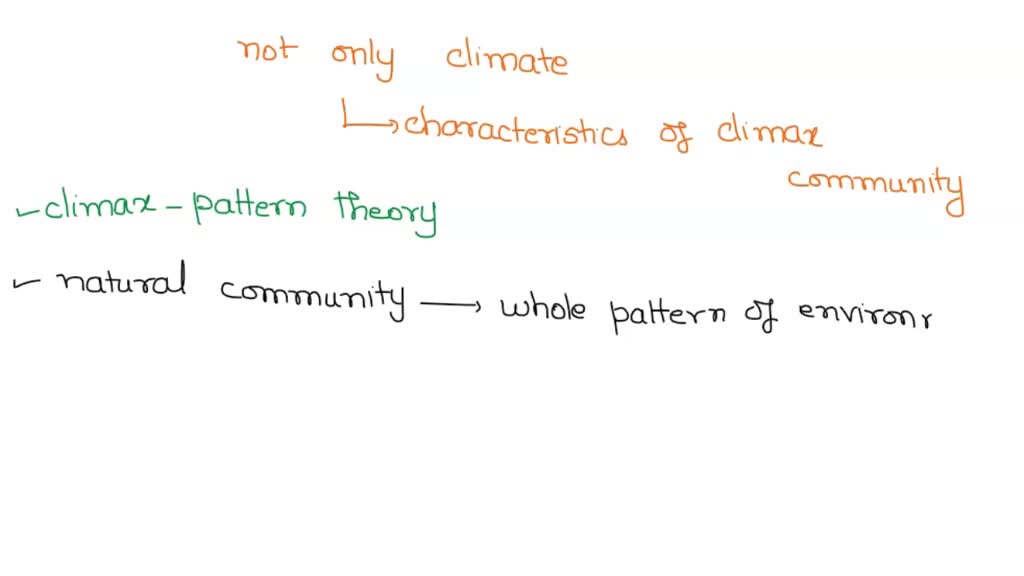 not only climate
↳ characteristics of climax
community
✓ climax - pattern theory
✓ natural community → whole pattern of environr